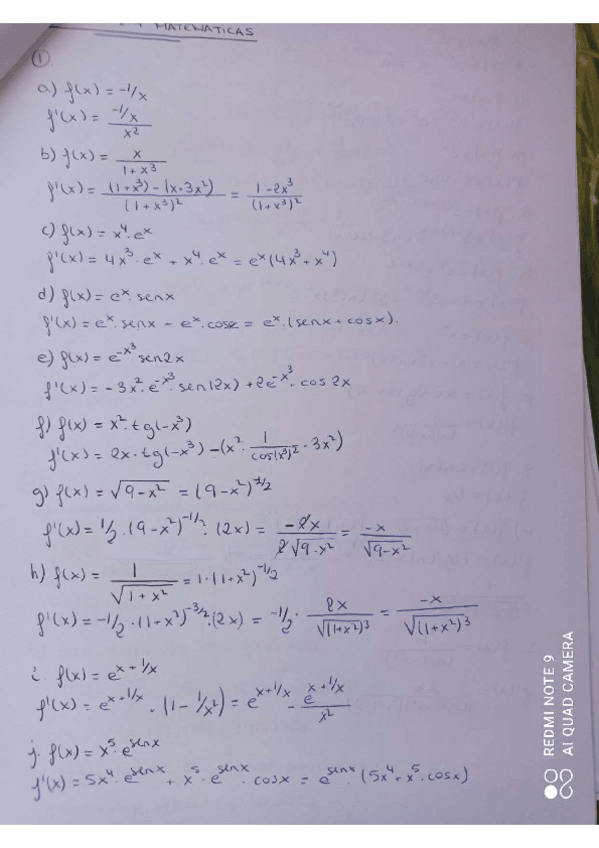 MATEMATICAS
1
a) f(x) = -1/x
f'(x) = \frac{-1/x}{x^2}
b) f(x) = \frac{x}{1+x^3}
f'(x) = \frac{(1+x^3)-(x·3x^2)}{(1+x^3)^2} = \frac{1-2x^3}{(1+x^3)^2}
c) f(x) = x^4·e^x
f'(x) = 4x^3·e^x + x^4·e^x = e^x(4x^3+x^4)
d) f(x) = e^x·senx
f'(x) = e^x·senx - e^x·cosx = e^x·(senx+cosx).
e) f(x) = e^{-x^3} sen2x
f'(x) = -3x^2·e^{-x^3}·sen(2x) + 2e^{-x^3}·cos2x
f) f(x) = x^2·tg(-x^3)
f'(x) = 2x·tg(-x^3) - (x^2·\frac{1}{cos(x^3)^2}·3x^2)
g) f(x) = \sqrt{9-x^2} = (9-x^2)^{1/2}
f'(x) = 1/2·(9-x^2)^{-1/2}·(2x) = \frac{-2x}{2\sqrt{9-x^2}} = \frac{-x}{\sqrt{9-x^2}}
h) f(x) = \frac{1}{\sqrt{1+x^2}} = 1·(1+x^2)^{-1/2}
f'(x) = -1/2·(1+x^2)^{-3/2}·(2x) = -1/2·\frac{2x}{\sqrt{(1+x^2)^3}} = \frac{-x}{\sqrt{(1+x^2)^3}}
i. f(x) = e^{x+1/x}
f'(x) = e^{x+1/x}·(1-1/x^2) = e^{x+1/x} - \frac{e^{x+1/x}}{x^2}
j. f(x) = x^5·e^{senx}
f'(x) = 5x^4·e^{senx} + x^5·e^{senx}·cosx = e^{senx}·(5x^4+x^5·cosx)
REDMI NOTE 9
AI QUAD CAMERA